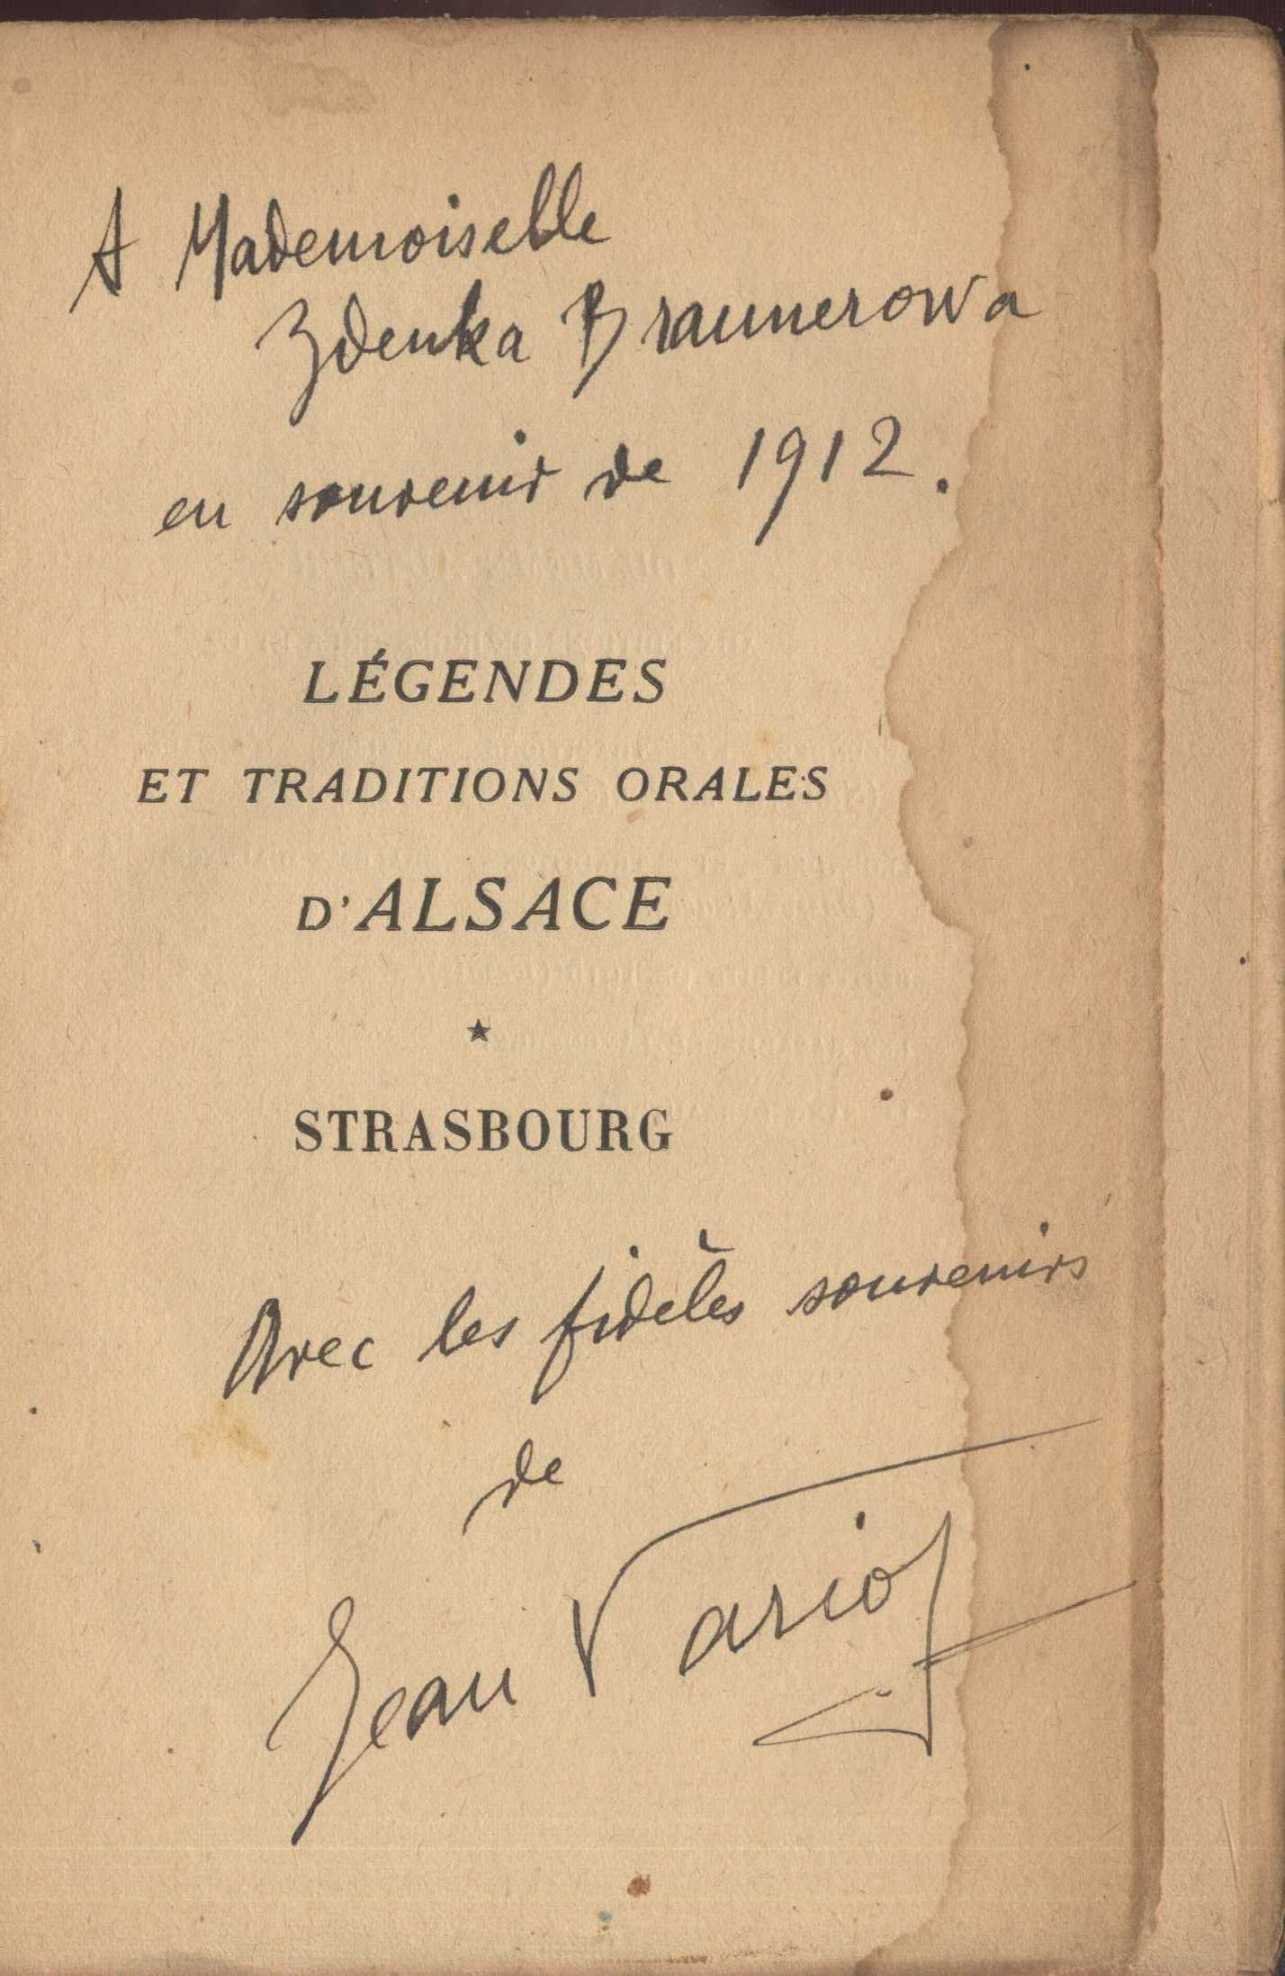 A Mademoiselle
Zdenka Braunerowa
en souvenir de 1912.
LÉGENDES
ET TRADITIONS ORALES
D'ALSACE
★
STRASBOURG
Avec les fidèles souvenirs
de
Jean Variot